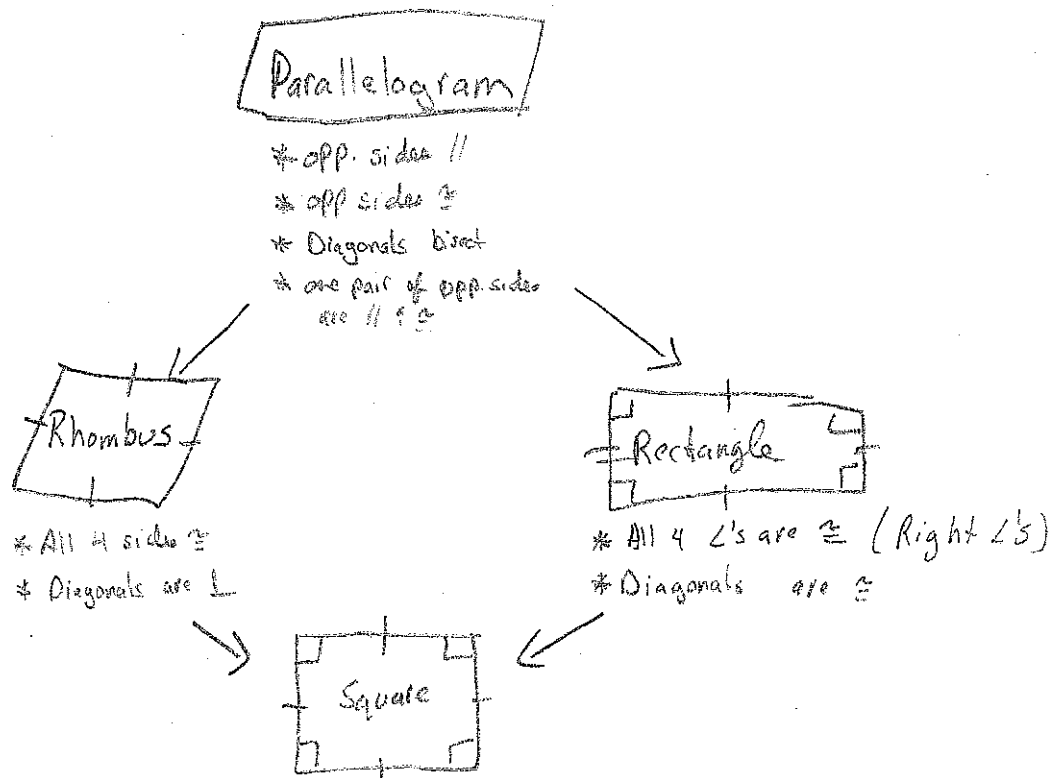 Parallelogram
* opp. sides //
* opp sides ≅
* Diagonals bisect
* one pair of opp. sides
are // & ≅
Rhombus
Rectangle
* All 4 sides ≅
* Diagonals are ⊥
* All 4 ∠'s are ≅ (Right ∠'s)
* Diagonals are ≅
Square